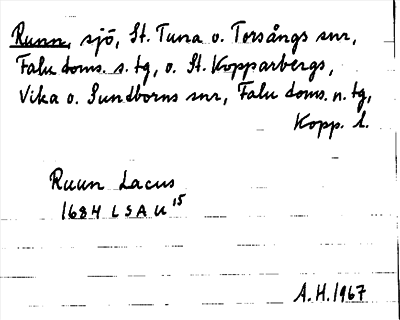 Runn, sjö, St. Tuna o. Torsångs snr,
Falu doms. s. tg, o. St. Kopparbergs,
Vika o. Sundborns snr, Falu doms. n. tg,
Kopp. l.
Ruun Lacus
1684 LSA U 15
A.H. 1967